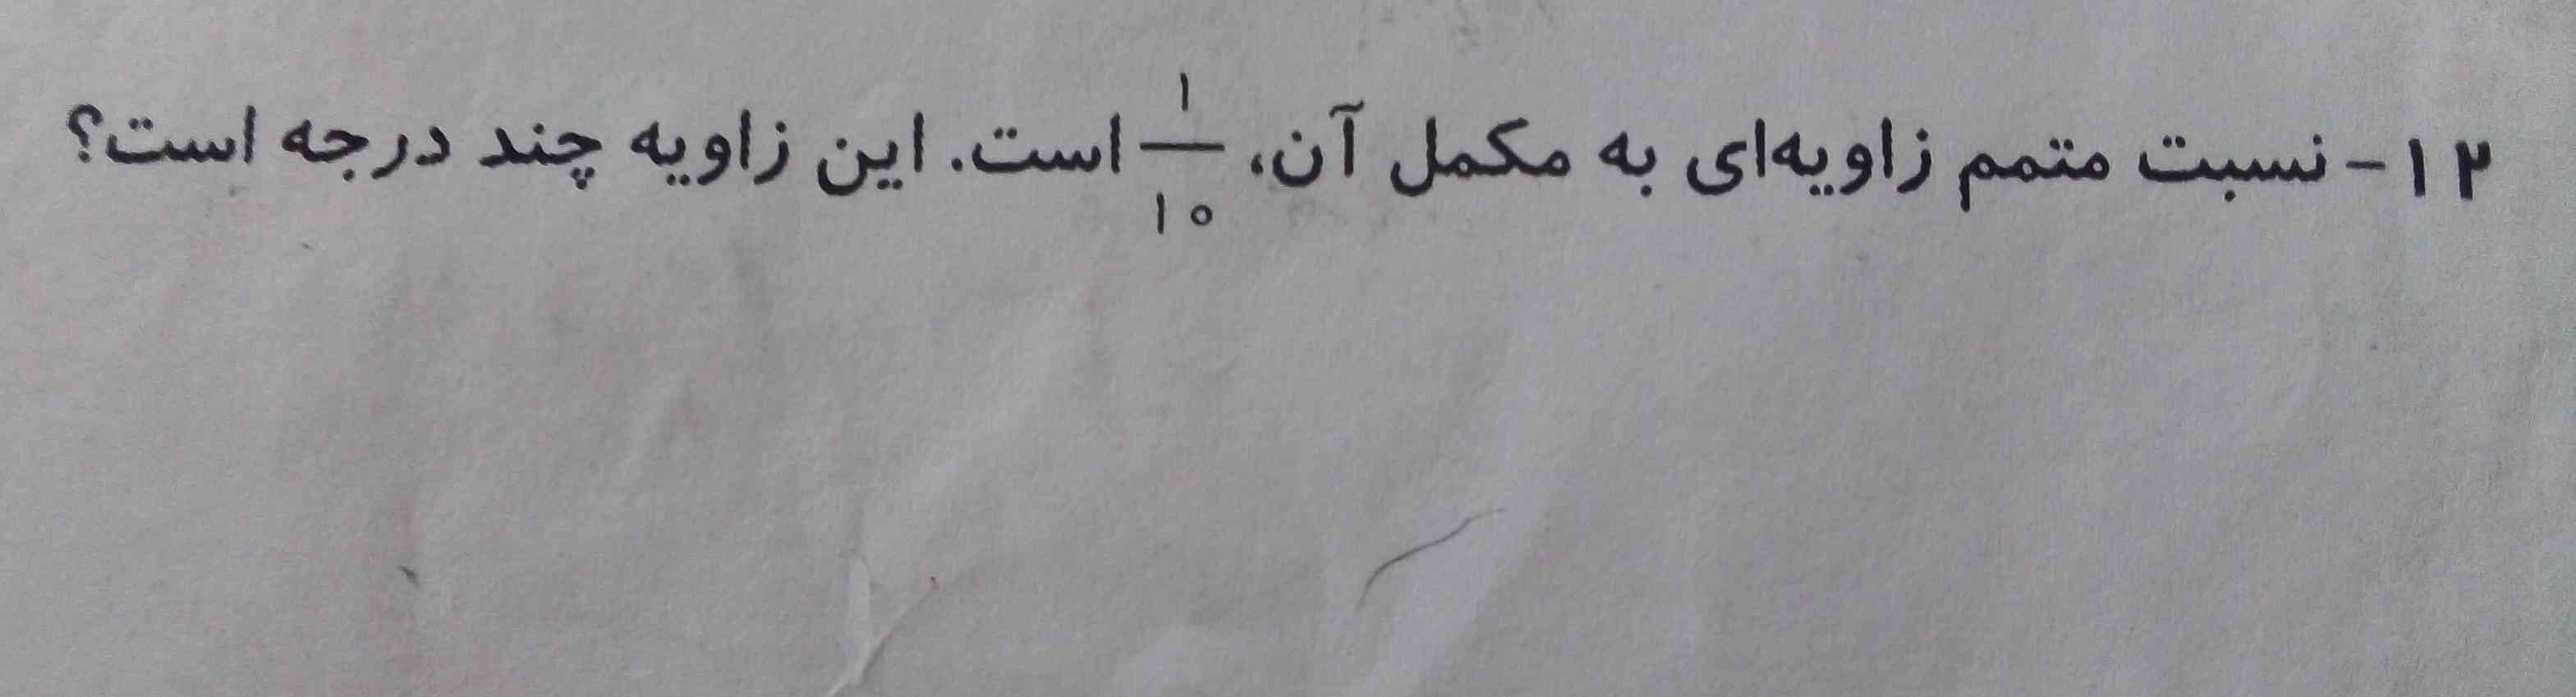 ۱۲- نسبت متمم زاویه‌ای به مکمل آن، ۱/۱۰ است. این زاویه چند درجه است؟